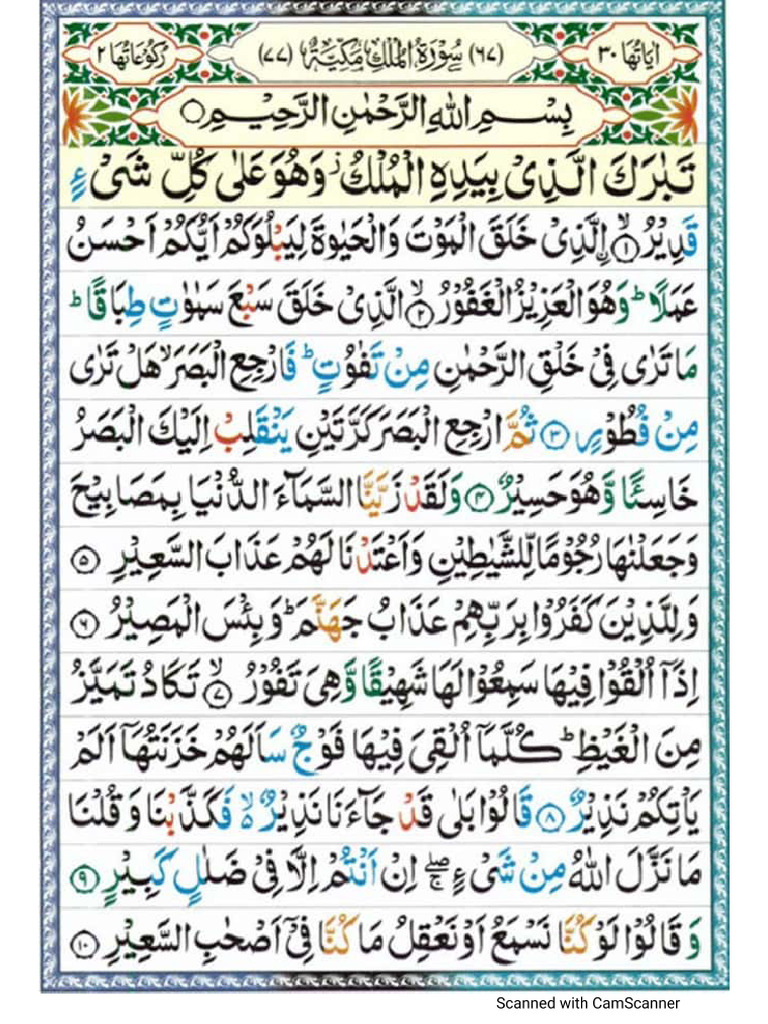 اٰيَاتُهَا ٣٠ (٦٧) سُوْرَةُ الْمُلْكِ مَكِّيَّةٌ (٧٧) رُكُوْعَاتُهَا ٢
بِسْمِ اللّٰهِ الرَّحْمٰنِ الرَّحِيْمِ ۝
تَبٰرَكَ الَّذِىْ بِيَدِهِ الْمُلْكُ ز وَهُوَ عَلٰى كُلِّ شَىْءٍ
قَدِيْرُ ۙ﴿١﴾ اۨلَّذِىْ خَلَقَ الْمَوْتَ وَالْحَيٰوةَ لِيَبْلُوَكُمْ اَيُّكُمْ اَحْسَنُ
عَمَلًا ؕ وَهُوَ الْعَزِيْزُ الْغَفُوْرُ ۙ﴿٢﴾ الَّذِىْ خَلَقَ سَبْعَ سَمٰوٰتٍ طِبَاقًا ؕ
مَا تَرٰى فِىْ خَلْقِ الرَّحْمٰنِ مِنْ تَفٰوُتٍ ؕ فَارْجِعِ الْبَصَرَ ۙ هَلْ تَرٰى
مِنْ فُطُوْرٍ ﴿٣﴾ ثُمَّ ارْجِعِ الْبَصَرَ كَرَّتَيْنِ يَنْقَلِبْ اِلَيْكَ الْبَصَرُ
خَاسِئًا وَّهُوَ حَسِيْرٌ ﴿٤﴾ وَلَقَدْ زَيَّنَّا السَّمَآءَ الدُّنْيَا بِمَصَابِيْحَ
وَجَعَلْنٰهَا رُجُوْمًا لِّلشَّيٰطِيْنِ وَاَعْتَدْنَا لَهُمْ عَذَابَ السَّعِيْرِ ﴿٥﴾
وَلِلَّذِيْنَ كَفَرُوْا بِرَبِّهِمْ عَذَابُ جَهَنَّمَ ؕ وَبِئْسَ الْمَصِيْرُ ﴿٦﴾
اِذَاۤ اُلْقُوْا فِيْهَا سَمِعُوْا لَهَا شَهِيْقًا وَّهِىَ تَفُوْرُ ۙ﴿٧﴾ تَكَادُ تَمَيَّزُ
مِنَ الْغَيْظِ ؕ كُلَّمَاۤ اُلْقِىَ فِيْهَا فَوْجٌ سَاَلَهُمْ خَزَنَتُهَاۤ اَلَمْ
يَاْتِكُمْ نَذِيْرٌ ﴿٨﴾ قَالُوْا بَلٰى قَدْ جَآءَنَا نَذِيْرٌ ۙ۬ فَكَذَّبْنَا وَقُلْنَا
مَا نَزَّلَ اللّٰهُ مِنْ شَىْءٍ ۖۚ اِنْ اَنْتُمْ اِلَّا فِىْ ضَلٰلٍ كَبِيْرٍ ﴿٩﴾
وَقَالُوْا لَوْ كُنَّا نَسْمَعُ اَوْ نَعْقِلُ مَا كُنَّا فِىْۤ اَصْحٰبِ السَّعِيْرِ ﴿١٠﴾
Scanned with CamScanner